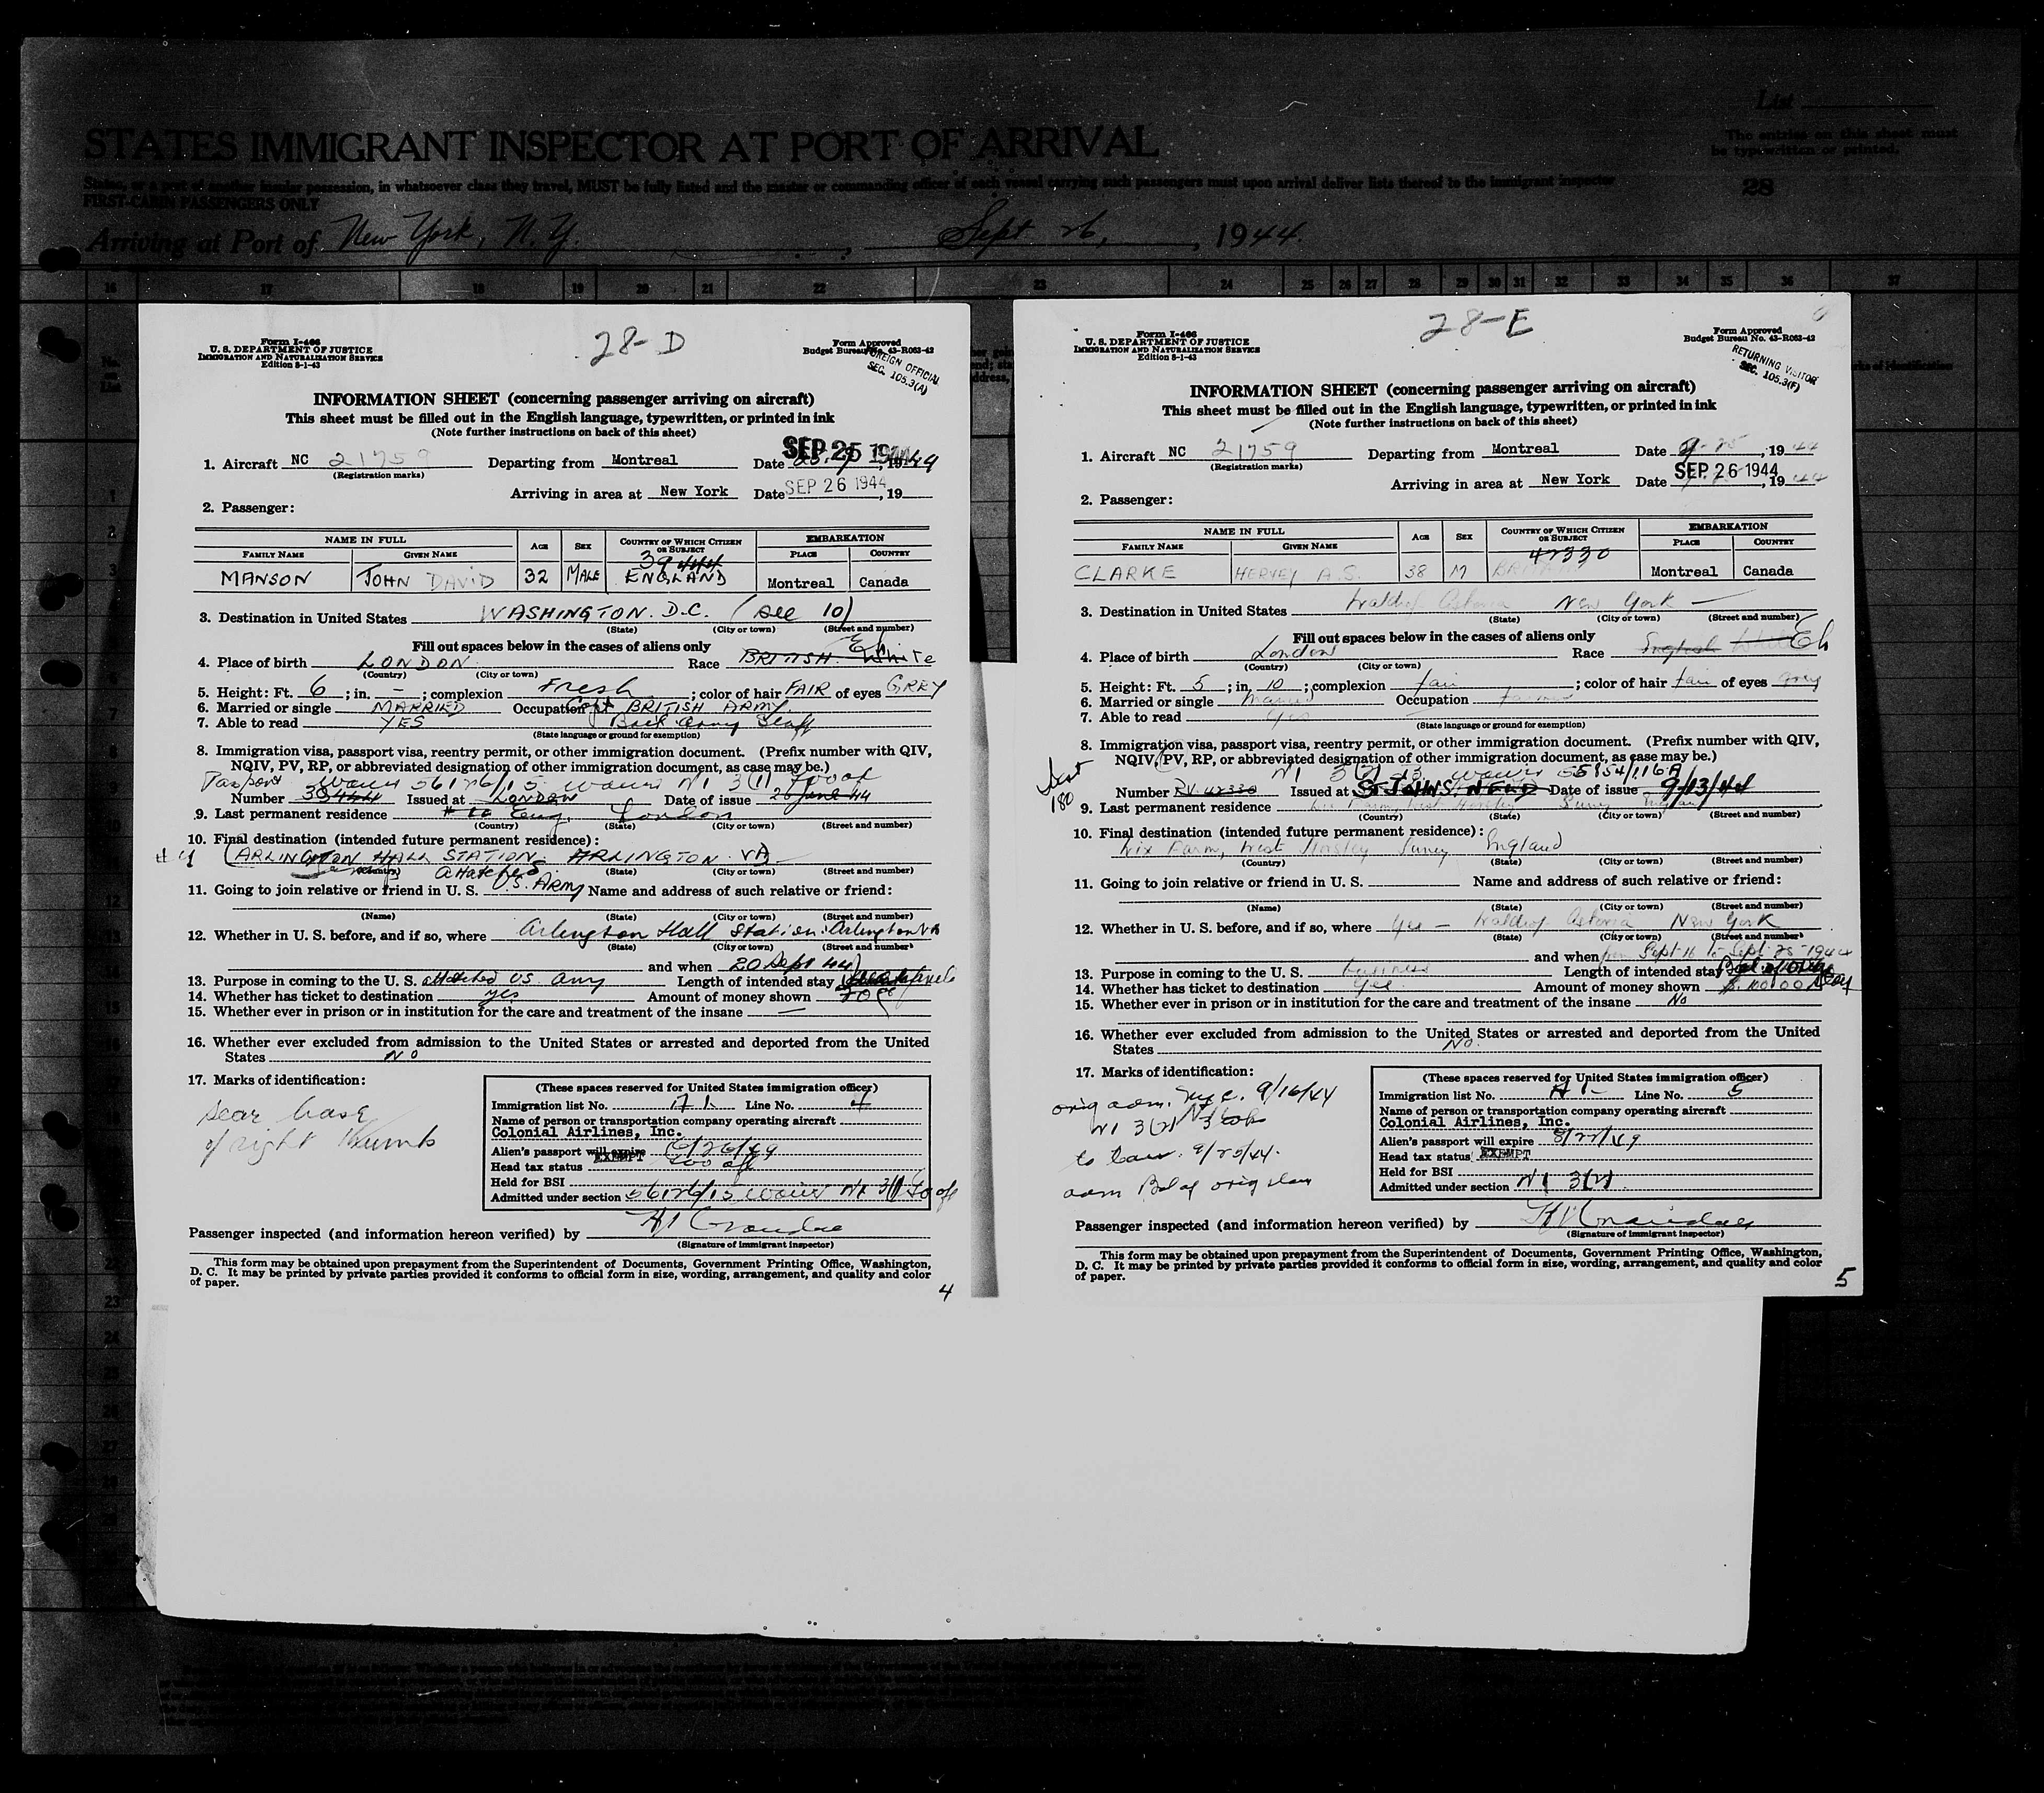 List
STATES IMMIGRANT INSPECTOR AT PORT OF ARRIVAL
The entries on this sheet must
be typewritten or printed.
States, or a port of another insular possession, in whatsoever class they travel, MUST be fully listed and the master or commanding officer of each vessel carrying such passengers must upon arrival deliver lists thereof to the immigrant inspector
FIRST-CABIN PASSENGERS ONLY
28
Arriving at Port of New York, N.Y. , Sept 26, , 1944.
16 17 18 19 20 21 22 23 24 25 26 27 28 29 30 31 32 33 34 35 36 37
Form I-466
U. S. DEPARTMENT OF JUSTICE
IMMIGRATION AND NATURALIZATION SERVICE
Edition 8-1-43
28-D
Form Approved
Budget Bureau No. 43-R063-42
FOREIGN OFFICIAL
SEC. 105.3(A)
INFORMATION SHEET (concerning passenger arriving on aircraft)
This sheet must be filled out in the English language, typewritten, or printed in ink
(Note further instructions on back of this sheet)
SEP 25 1944
1. Aircraft NC 21759 Departing from Montreal Date , 19
(Registration marks)
Arriving in area at New York Date SEP 26 1944, 19
2. Passenger:
NAME IN FULL AGE SEX COUNTRY OF WHICH CITIZEN OR SUBJECT EMBARKATION
FAMILY NAME GIVEN NAME PLACE COUNTRY
39444
MANSON JOHN DAVID 32 MALE ENGLAND Montreal Canada
3. Destination in United States WASHINGTON. D.C. (see 10)
(State) (City or town) (Street and number)
Fill out spaces below in the cases of aliens only
4. Place of birth LONDON Race BRITISH. White
(Country) (City or town)
5. Height: Ft. 6 ; in. - ; complexion Fresh ; color of hair FAIR of eyes GREY
6. Married or single MARRIED Occupation Capt BRITISH ARMY
7. Able to read YES Brit Army Staff
(State language or ground for exemption)
8. Immigration visa, passport visa, reentry permit, or other immigration document. (Prefix number with QIV,
NQIV, PV, RP, or abbreviated designation of other immigration document, as case may be.)
Passport Waiver 56126/15 waiver N1 3(1)
Number 39444 Issued at LONDON Date of issue 26 June 44
9. Last permanent residence Eng. London
(Country) (State) (City or town) (Street and number)
10. Final destination (intended future permanent residence):
#4 (ARLINGTON HALL STATION ARLINGTON. VA)
(Country) (State) (City or town) (Street and number)
attached
11. Going to join relative or friend in U. S. U.S. Army Name and address of such relative or friend:
(Name) (State) (City or town) (Street and number)
12. Whether in U. S. before, and if so, where Arlington Hall Station Arlington VA
(State) (City or town) (Street and number)
and when 20 Sept 44
13. Purpose in coming to the U. S. attached US. Army Length of intended stay
14. Whether has ticket to destination yes Amount of money shown
15. Whether ever in prison or in institution for the care and treatment of the insane —
16. Whether ever excluded from admission to the United States or arrested and deported from the United
States NO
17. Marks of identification:
scar base
of right thumb
(These spaces reserved for United States immigration officer)
Immigration list No. A1- Line No. 4
Name of person or transportation company operating aircraft
Colonial Airlines, Inc.
Alien's passport will expire 6/26/49
Head tax status EXEMPT
Held for BSI
Admitted under section 56126/15 waiver N1 3(1)
Passenger inspected (and information hereon verified) by
(Signature of immigrant inspector)
This form may be obtained upon prepayment from the Superintendent of Documents, Government Printing Office, Washington,
D. C. It may be printed by private parties provided it conforms to official form in size, wording, arrangement, and quality and color
of paper.
4
Form I-466
U. S. DEPARTMENT OF JUSTICE
IMMIGRATION AND NATURALIZATION SERVICE
Edition 8-1-43
28-E
Form Approved
Budget Bureau No. 43-R063-42
RETURNING VISITOR
SEC. 105.3(F)
INFORMATION SHEET (concerning passenger arriving on aircraft)
This sheet must be filled out in the English language, typewritten, or printed in ink
(Note further instructions on back of this sheet)
1. Aircraft NC 21759 Departing from Montreal Date 9-25, 1944
(Registration marks)
SEP 26 1944
Arriving in area at New York Date , 1944
2. Passenger:
NAME IN FULL AGE SEX COUNTRY OF WHICH CITIZEN OR SUBJECT EMBARKATION
FAMILY NAME GIVEN NAME PLACE COUNTRY
42330
CLARKE HERVEY A.S. 38 M Montreal Canada
3. Destination in United States Waldorf Astoria New York —
(State) (City or town) (Street and number)
Fill out spaces below in the cases of aliens only
4. Place of birth London Race English White Eh
(Country) (City or town)
5. Height: Ft. 5 ; in. 10 ; complexion fair ; color of hair fair of eyes grey
6. Married or single Married Occupation farmer
7. Able to read yes
(State language or ground for exemption)
8. Immigration visa, passport visa, reentry permit, or other immigration document. (Prefix number with QIV,
NQIV, PV, RP, or abbreviated designation of other immigration document, as case may be.)
N1 3(2) waiver 55854/116A
Number PV-42330 Issued at ST. JOHNS. NFLD Date of issue 9/13/44
180
9. Last permanent residence Farm, West Horsley Surrey England
(Country) (State) (City or town) (Street and number)
10. Final destination (intended future permanent residence):
Wix Farm, West Horsley Surrey England
(Country) (State) (City or town) (Street and number)
11. Going to join relative or friend in U. S. Name and address of such relative or friend:
(Name) (State) (City or town) (Street and number)
12. Whether in U. S. before, and if so, where Yes — Waldorf Astoria New York
(State) (City or town) (Street and number)
and when from Sept 16 to Sept 25 - 1944
13. Purpose in coming to the U. S. business Length of intended stay
14. Whether has ticket to destination Yes Amount of money shown
15. Whether ever in prison or in institution for the care and treatment of the insane No
16. Whether ever excluded from admission to the United States or arrested and deported from the United
States NO.
17. Marks of identification:
orig adm. 9/16/44
N1 3(2)
to Can. 9/25/44.
adm Bal of orig
(These spaces reserved for United States immigration officer)
Immigration list No. A1- Line No. 5
Name of person or transportation company operating aircraft
Colonial Airlines, Inc.
Alien's passport will expire 8/22/49
Head tax status EXEMPT
Held for BSI
Admitted under section N1 3(2)
Passenger inspected (and information hereon verified) by
(Signature of immigrant inspector)
This form may be obtained upon prepayment from the Superintendent of Documents, Government Printing Office, Washington,
D. C. It may be printed by private parties provided it conforms to official form in size, wording, arrangement, and quality and color
of paper.
5